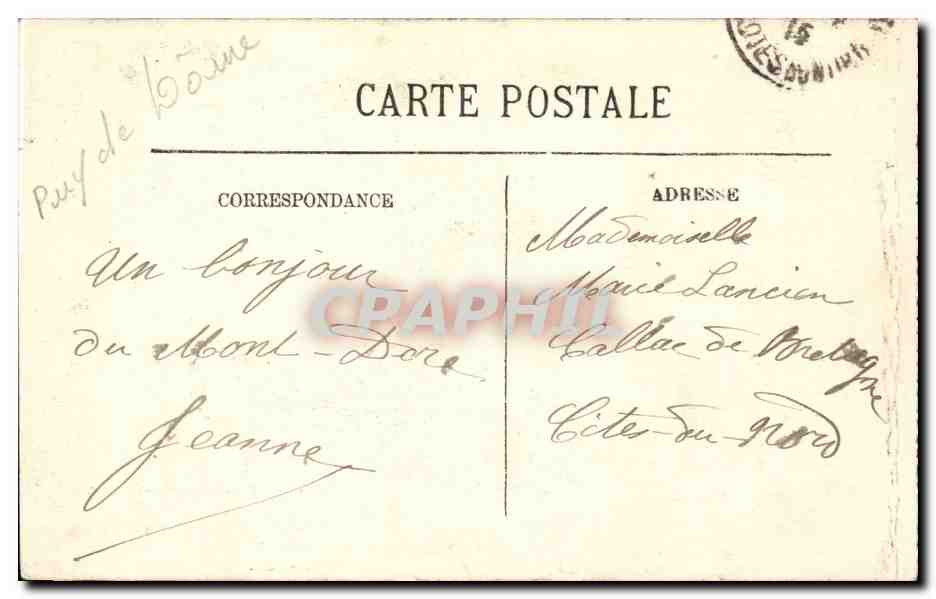 Puy de Dôme
15
COTES DU NORD
CARTE POSTALE
CORRESPONDANCE
ADRESSE
Un bonjour
du Mont-Dore
Jeanne
Mademoiselle
Marie Lancien
Callac de Bretagne
Côtes-du-Nord
CPAPHIL